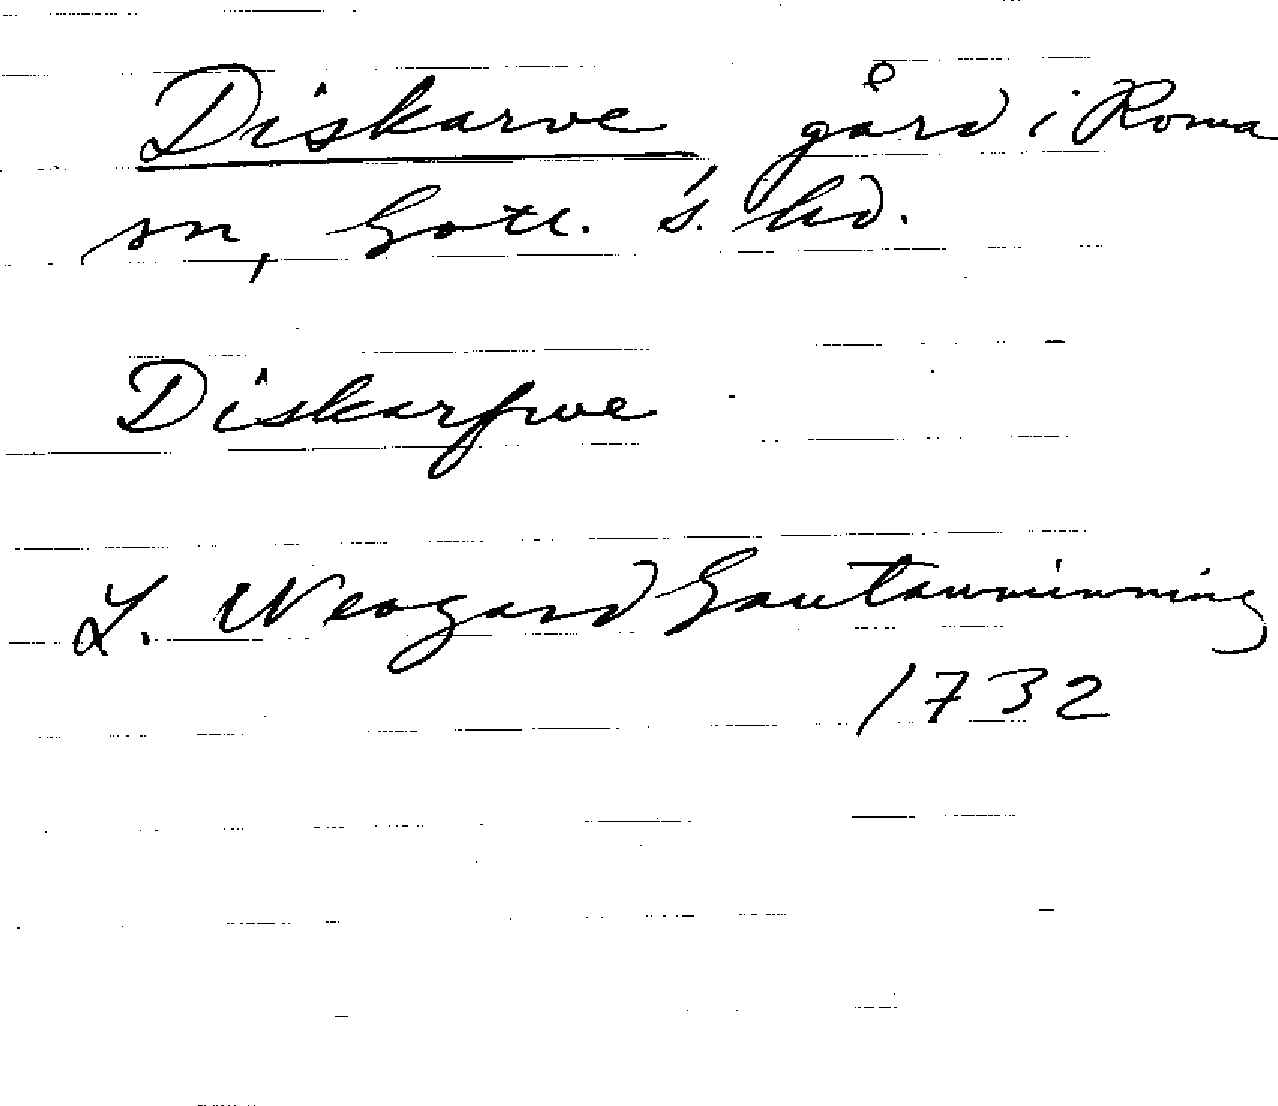 Diskarve, gård i Roma
sn, Gotl. s. hd.
Diskarfwe
L. Neogard Gautauminning
1732